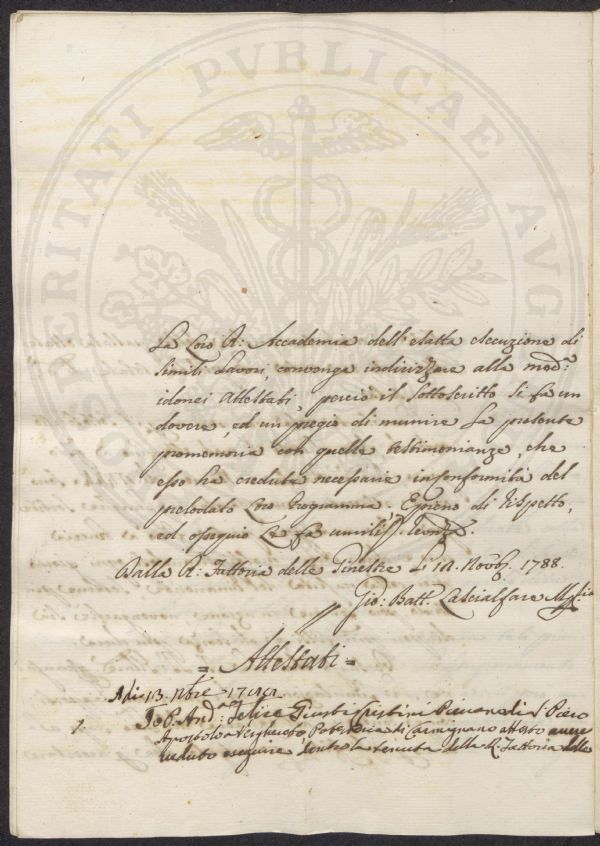 PROSPERITATI PVBLICAE AVG
La loro R: Accademia dell'esatta esecuzione di
simili Lavori, convenga indirizzare alla med:ª
idonei Attestati, perciò il Sottoscritto si fa un
dovere, ed un pregio di munire la presente
promemoria con quelle testimonianze, che
esso ha credute necessarie in conformità del
prelodato loro Programma. E pieno di rispetto,
ed ossequio Le fa umiliss.
Dalla R: Fattoria delle Ginestre Li 12. Novb. 1788.
Gio: Batt. Casciallfare
= Attestati =
Adi 13. Nbre
1 Io P. And:ª Felice Giusti Cristini Pievano di S. Piero
Apostolo a Verghereto Potesteria di Carmignano attesto avere
veduto eseguire dentro la tenuta della R. Fattoria delle